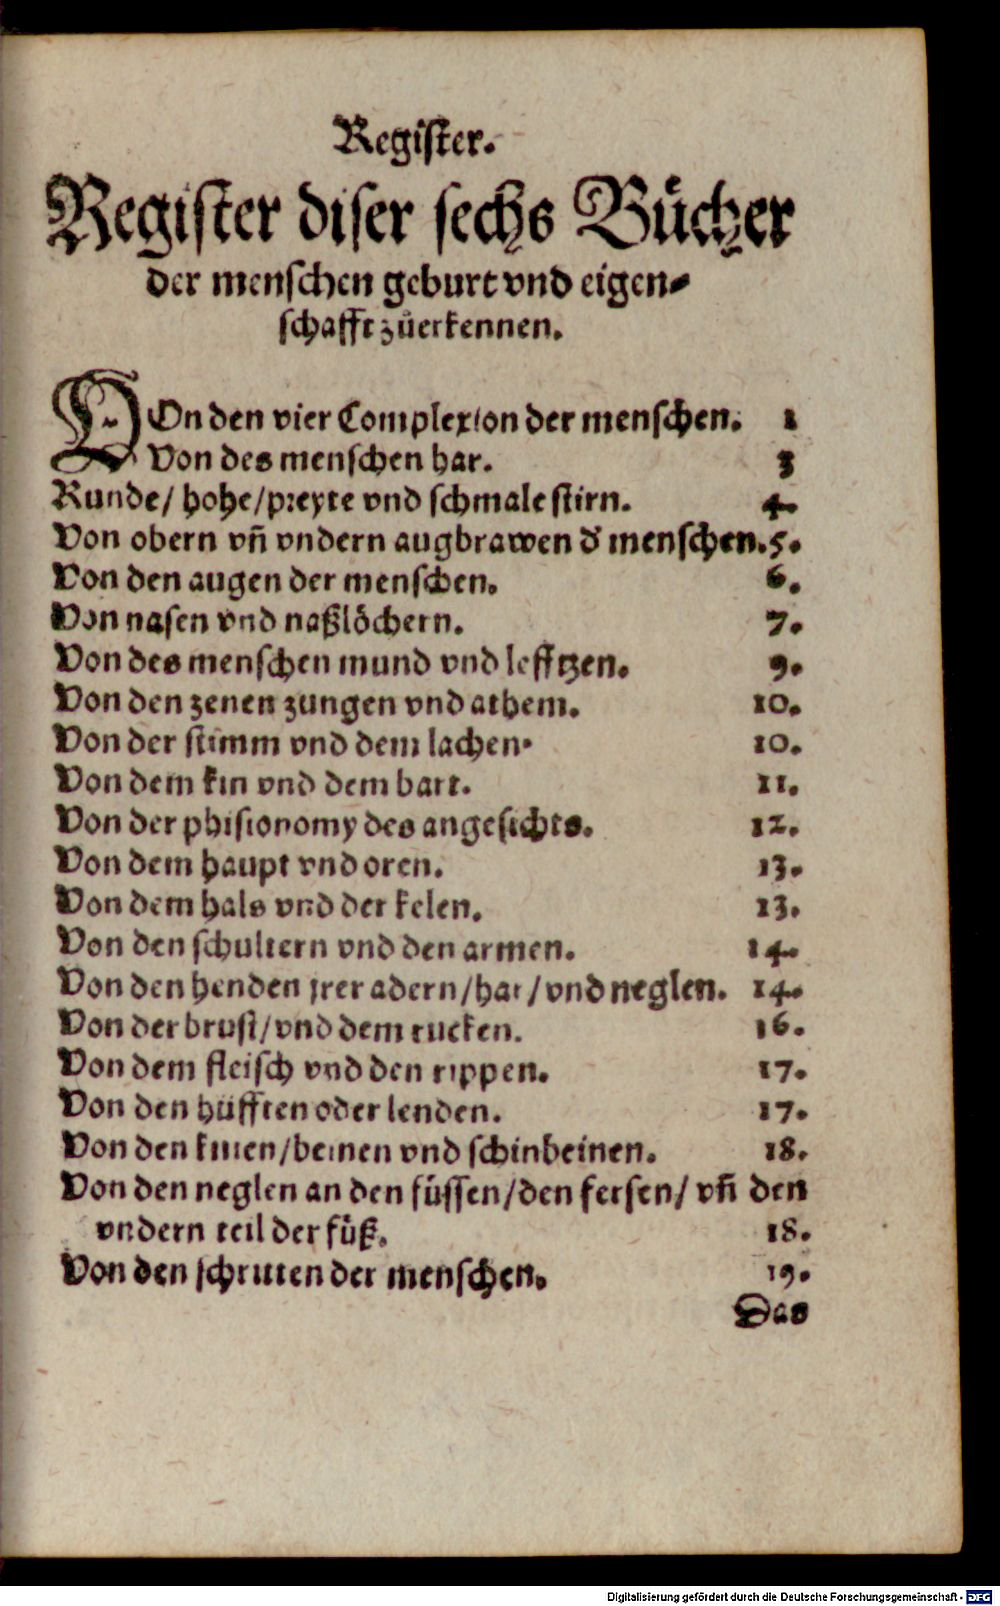 Register.
Register diser sechs Bůcher
der menschen geburt vnd eigen-
schafft zůerkennen.
VOn den vier Complexion der menschen. 1
Von des menschen har. 3
Runde/ hohe/preyte vnd schmale stirn. 4.
Von obern vñ vndern augbrawen d' menschen. 5.
Von den augen der menschen. 6.
Von nasen vnd naßlöchern. 7.
Von des menschen mund vnd lefftzen. 9.
Von den zenen zungen vnd athem. 10.
Von der stimm vnd dem lachen. 10.
Von dem kin vnd dem bart. 11.
Von der phisionomy des angesichts. 12.
Von dem haupt vnd oren. 13.
Von dem hals vnd der kelen. 13.
Von den schultern vnd den armen. 14.
Von den henden jrer adern/har/vnd neglen. 14.
Von der brust/vnd dem rucken. 16.
Von dem fleisch vnd den rippen. 17.
Von den hüfften oder lenden. 17.
Von den knien/beinen vnd schinbeinen. 18.
Von den neglen an den füssen/den fersen/ vñ den
vndern teil der füß. 18.
Von den schritten der menschen. 19.
Das
Digitalisierung gefördert durch die Deutsche Forschungsgemeinschaft - DFG